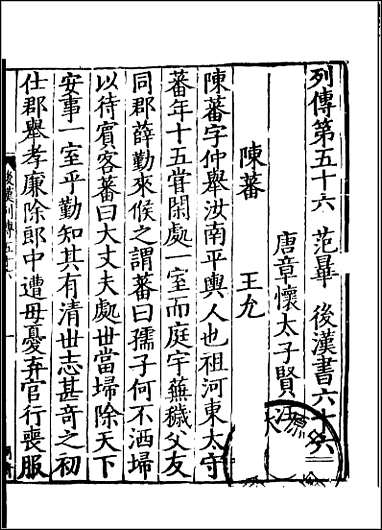 列傳第五十六 范曄 後漢書六十六
唐章懷太子賢
陳蕃 王允
陳蕃字仲舉汝南平輿人也祖河東太守
蕃年十五嘗閑處一室而庭宇蕪穢父友
同郡薛勤來候之謂蕃曰孺子何不洒埽
以待賓客蕃曰大丈夫處世當埽除天下
安事一室乎勤知其有清世志甚奇之初
仕郡舉孝廉除郎中遭母憂弃官行喪服
後漢列傳五十六
一